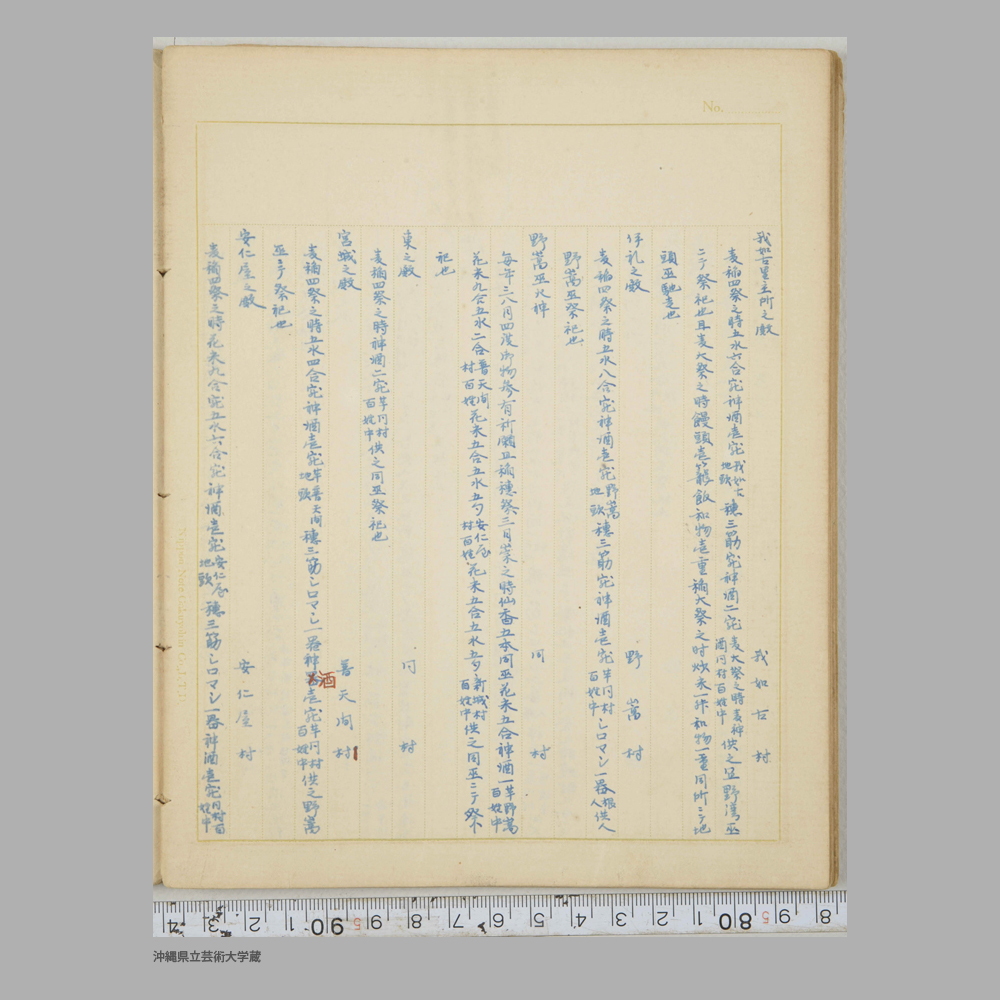 No.
我如古里主所之殿　我如古村
麦稲四祭之時五水六合宛神酒壱宛我如古地頭穂三筋宛神酒二宛麦大祭之時麦神酒同村百姓中供之且野嵩巫
ニテ祭祀也且麦大祭之時饅頭壱籠飯和物壱重稲大祭之時炒米一升和物一重同所ニテ地
頭巫馳走也
伊礼之殿　野嵩村
麦稲四祭之時五水八合宛神酒壱宛野嵩地頭穂三筋宛神酒壱宛竿同村百姓中シロマシ一器根人供
野嵩巫祭祀也
野嵩巫火神　同村
毎年三八月四度御物参有祈願且稲穂祭三日崇之時仙香五本同巫花米五合神酒一竿野嵩百姓中
花米九合五水二合普天間村百姓花米五合五水五勺安仁屋村百姓花米五合五水五勺新城村百姓中供之同巫ニテ祭
祀也
東之殿　同村
麦稲四祭之時神酒二宛竿同村百姓中供之同巫祭祀也
宮城之殿　普天間村
麦稲四祭之時五水四合宛神酒壱宛竿普天間地頭穂三筋シロマシ一器神酒壱宛竿同村百姓中供之野嵩
巫ニテ祭祀也
安仁屋之殿　安仁屋村
麦稲四祭之時花米九合宛五水六合宛神酒壱宛安仁屋地頭穂三筋シロマシ一器神酒壱宛同村百姓中
8 9 5 80 1 2 3 4 5 6 7 8 9 5 90 1 2 3 4
沖縄県立芸術大学蔵